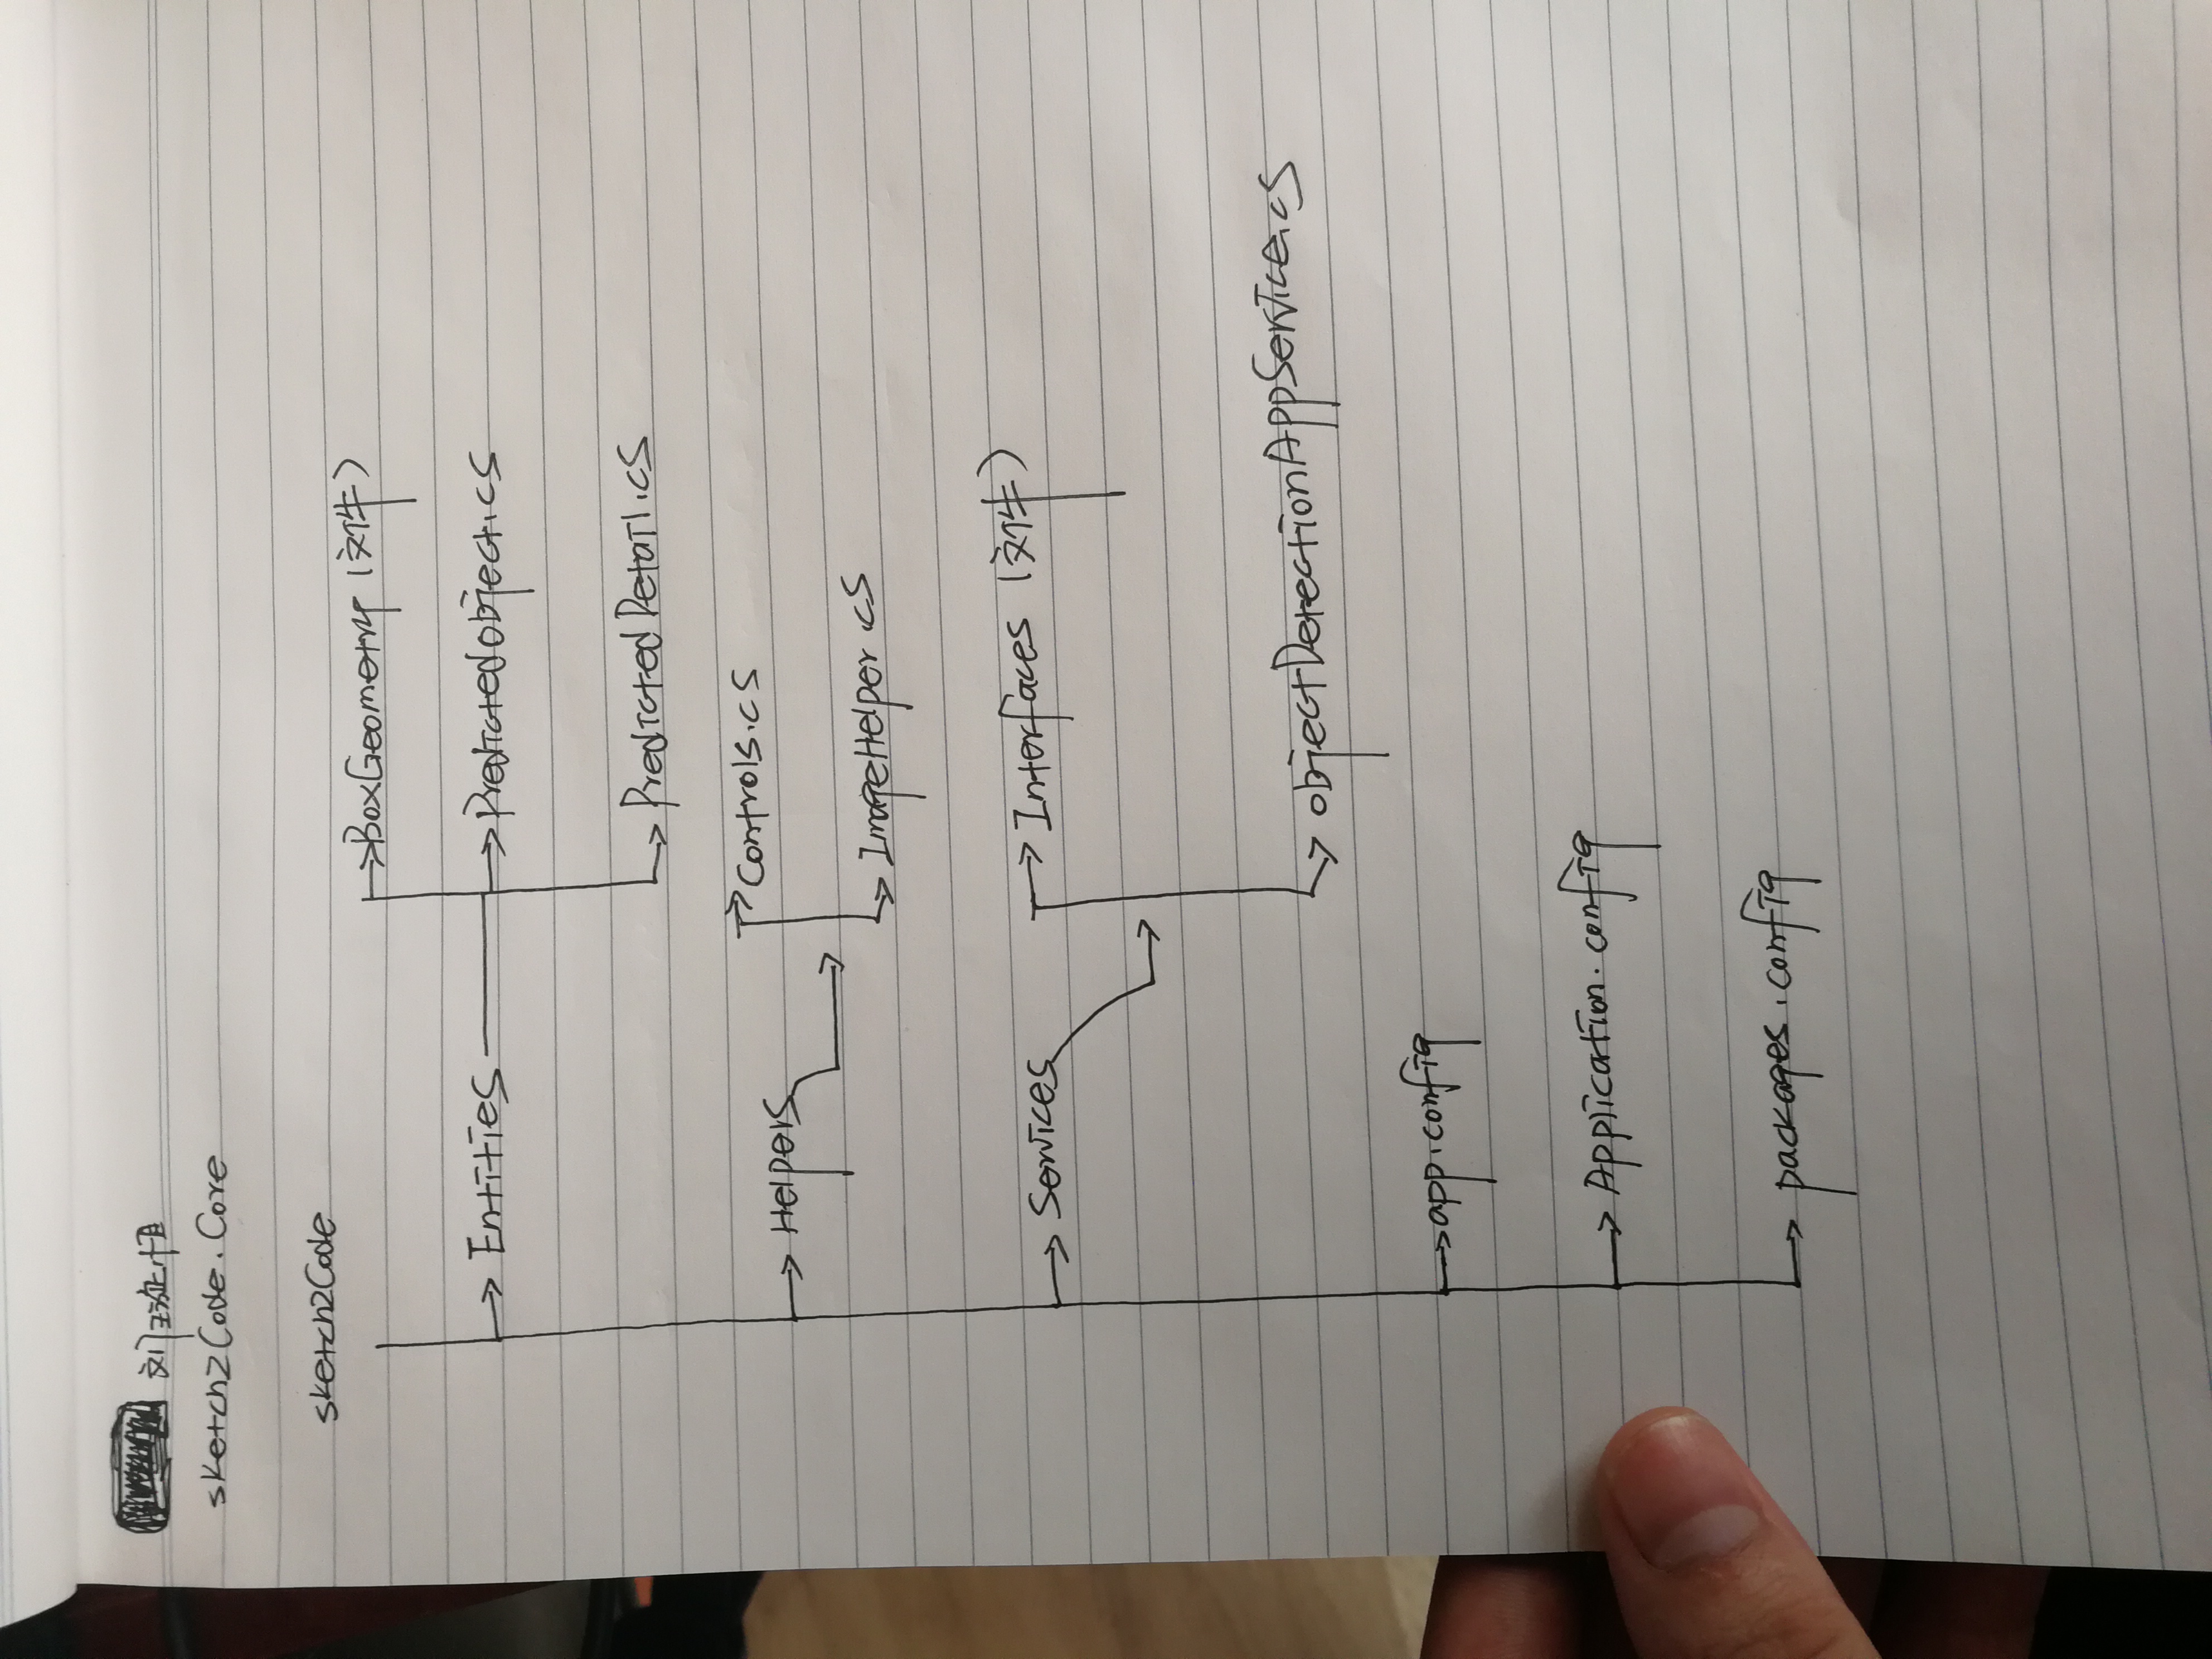 刘琰恒
sketch2Code.Core
sketch2Code
Entities
BoxGeometry (文件)
PredictedObject.cs
PredictedDetail.cs
Helpers
Controls.cs
ImageHelper.cs
Services
Interfaces (文件)
objectDetectionAppService.cs
app.config
Application.config
packages.config